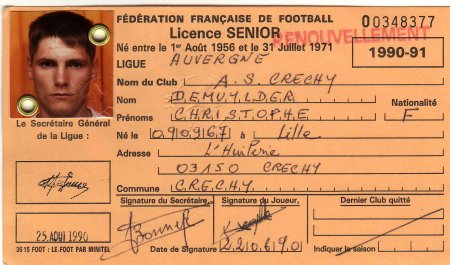 FÉDÉRATION FRANÇAISE DE FOOTBALL
00348377
Licence SENIOR
RENOUVELLEMENT
Né entre le 1er Août 1956 et le 31 Juillet 1971
1990-91
LIGUE AUVERGNE
Nom du Club A.S. CRECHY
Nom DEMUYLDER
Nationalité
Prénoms CHRISTOPHE F
Né le 090967 à Lille
Le Secrétaire Général
de la Ligue :
Adresse L'Huilerie
03150 CRECHY
Commune CRECHY
Signature du Secrétaire
Signature du Joueur
Dernier Club quitté
25 AOUT 1990
Date de Signature 220690
Indiquer la saison
3615 FOOT : LE FOOT PAR MINITEL